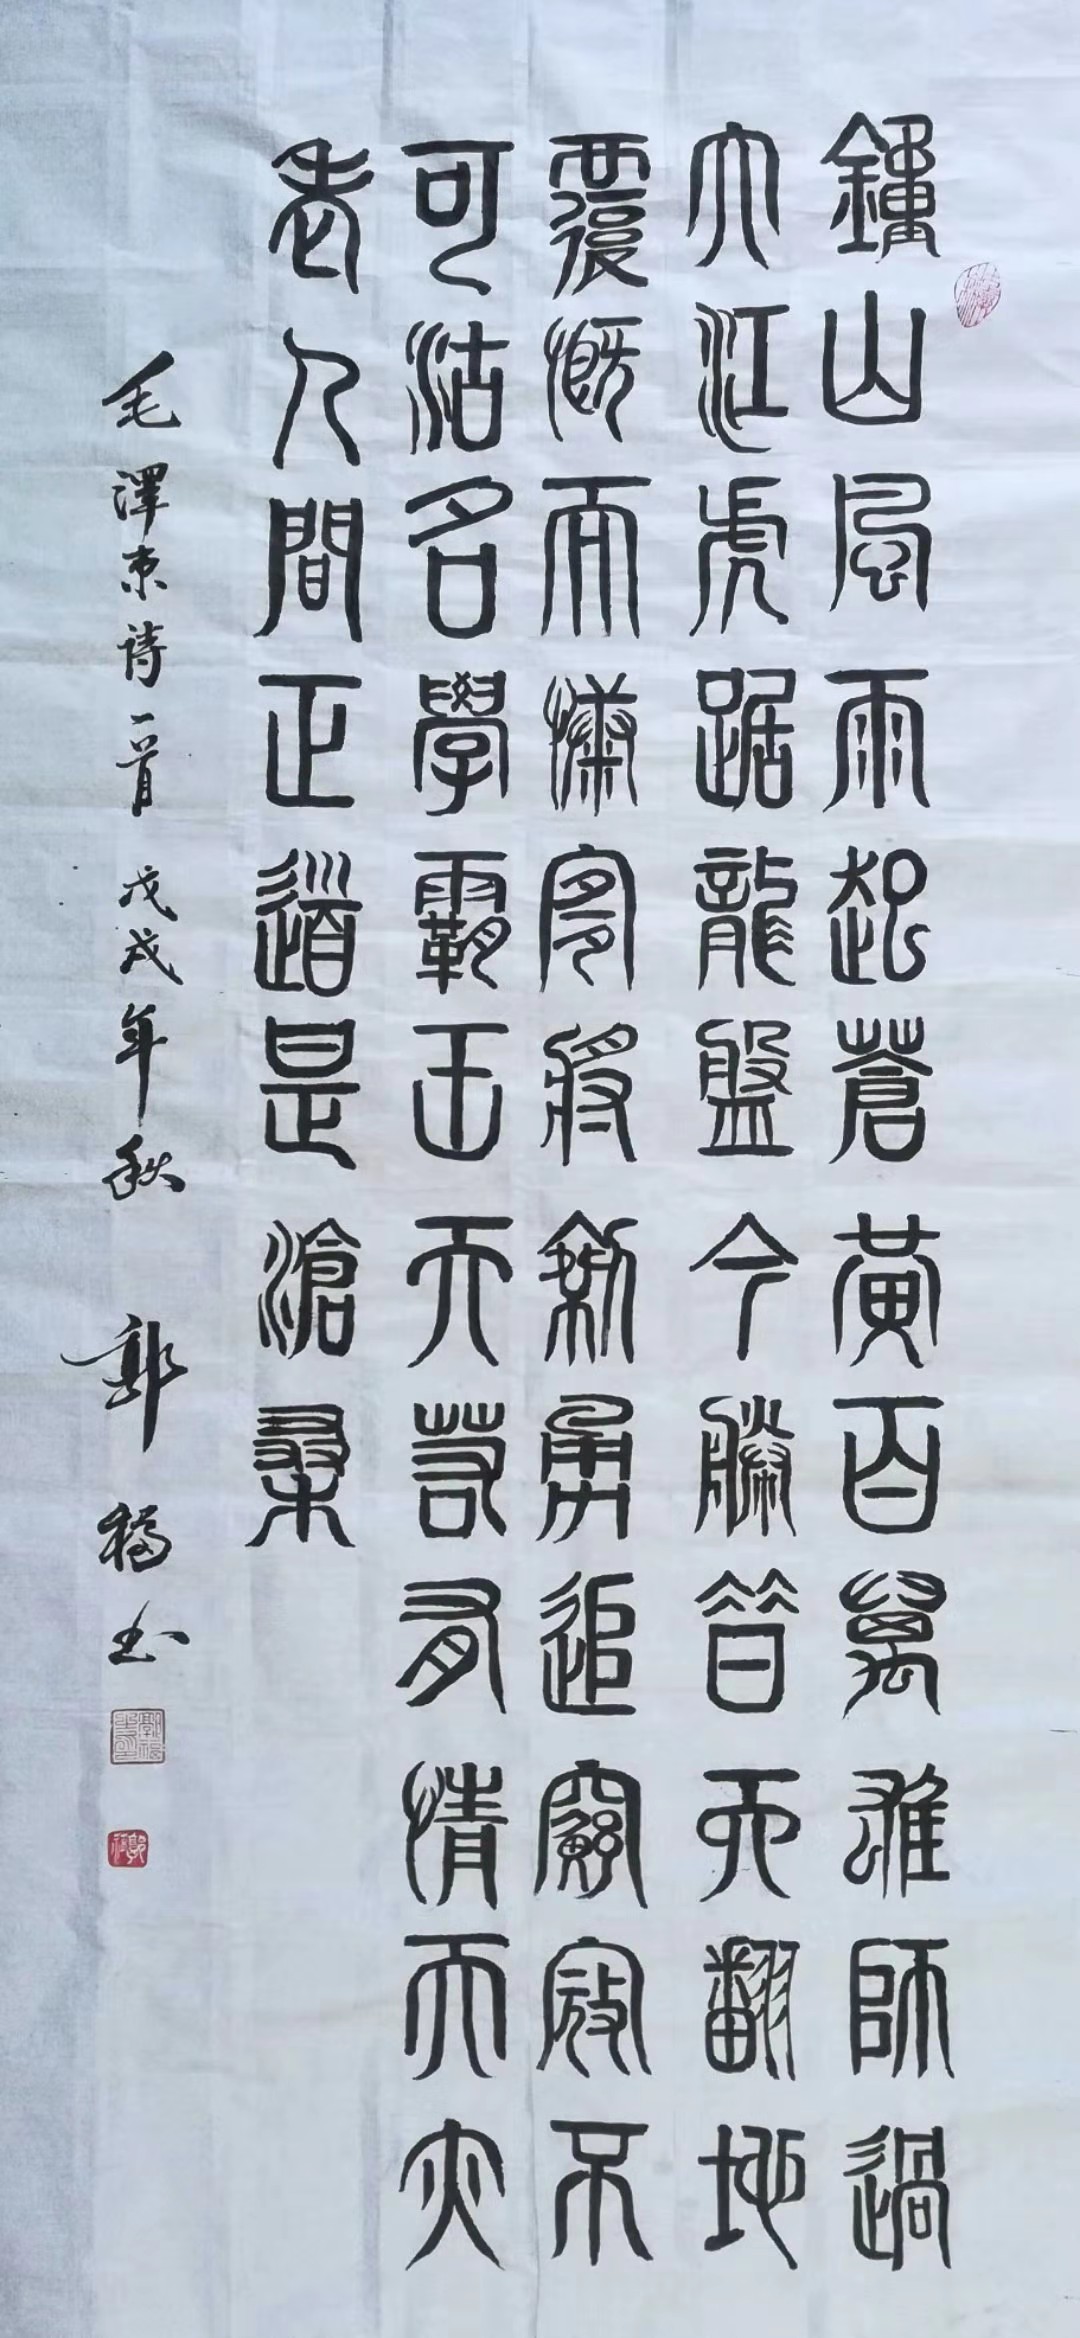 鍾山風雨起蒼黃百萬雄師過
大江虎踞龍盤今勝昔天翻地
覆慨而慷宜將剩勇追窮寇不
可沽名學霸王天若有情天亦
老人間正道是滄桑
毛澤東詩一首 戊戌年秋 郭 书